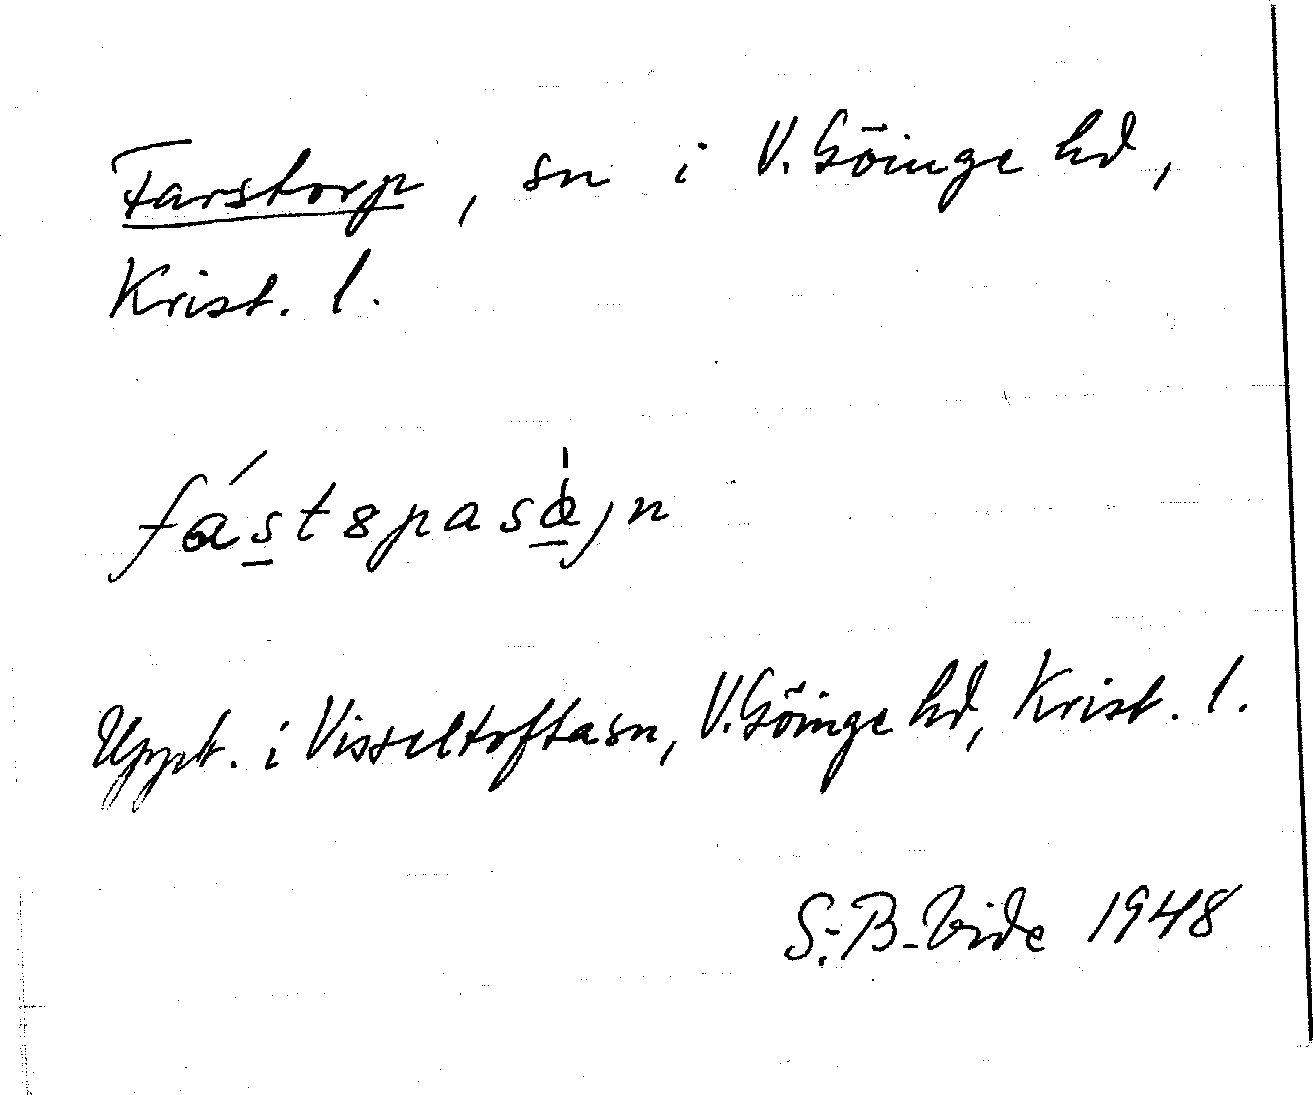 Farstorp, sn i V. Göinge hd,
Krist. l.
fástspasajn
Uppt. i Visseltoftasn, V. Göinge hd, Krist. l.
S.-B. Vide 1948